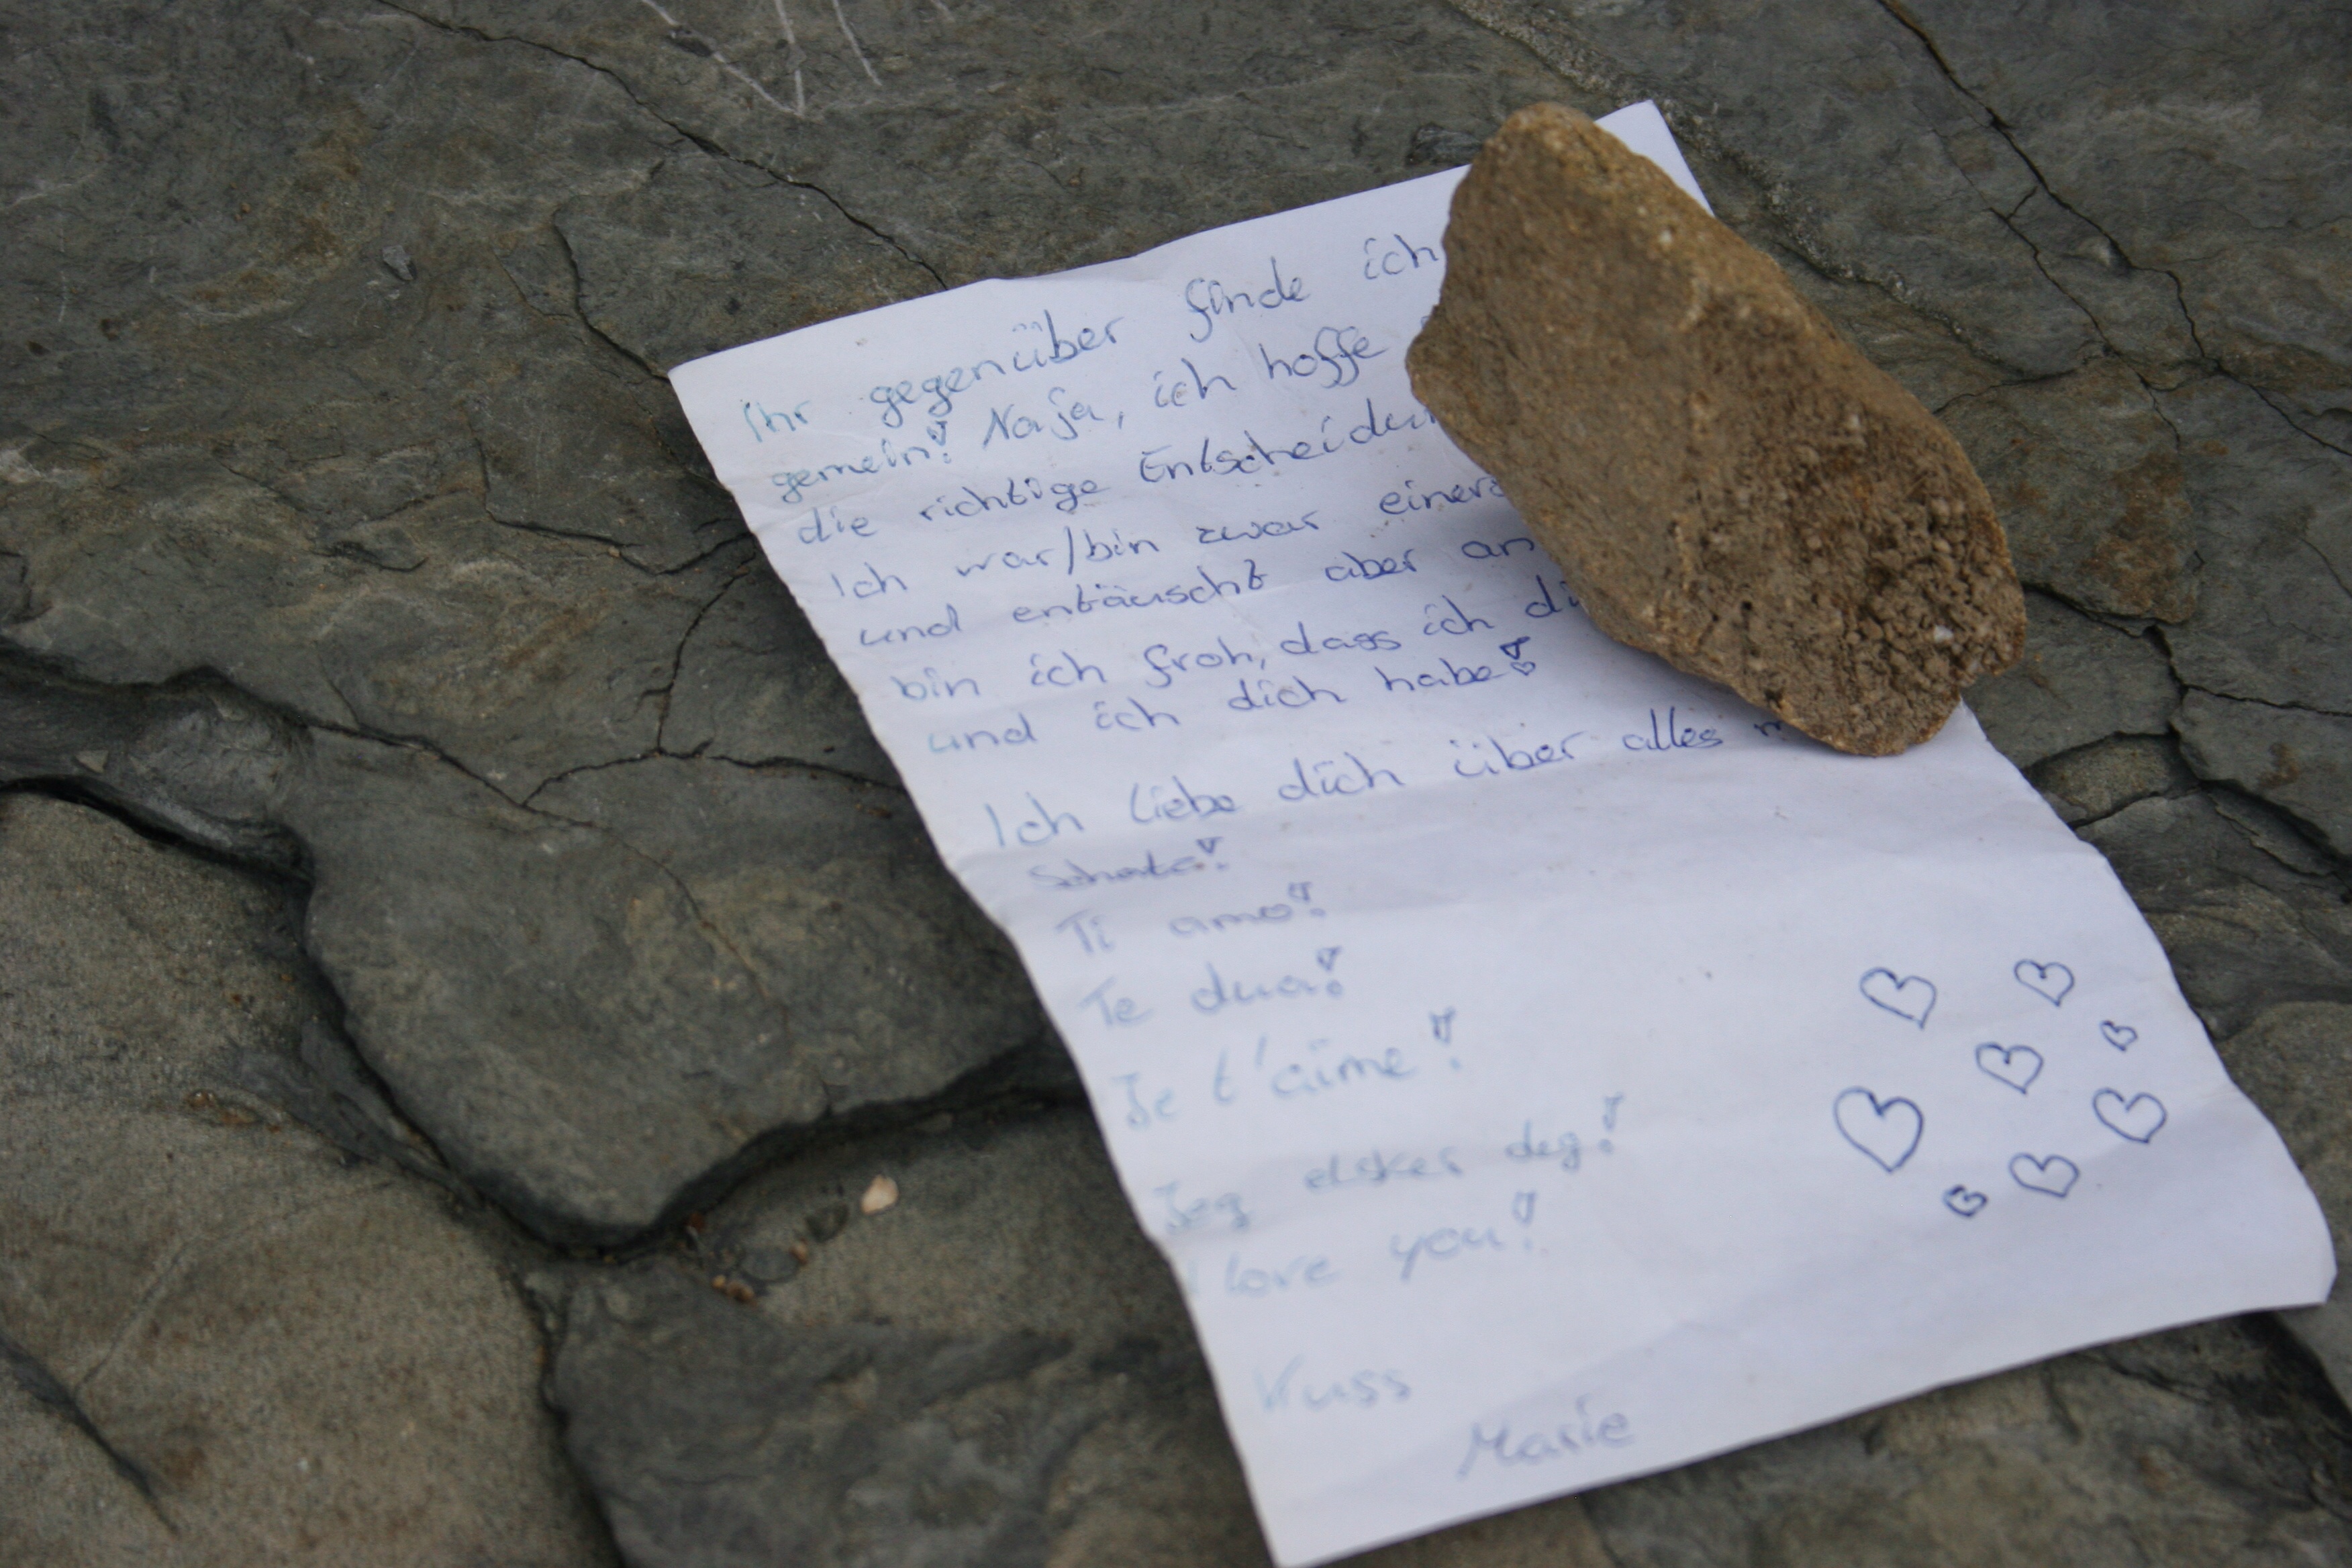 Ihr gegenüber finde ich
gemein! Naja, ich hoffe
die richtige
Ich war/bin zwar
und entäuscht aber
bin ich froh, dass ich
und ich dich habe!
Ich liebe dich über alles
Schatz!
Ti amo!
Te dua!
Je t'aime!
Jeg elsker deg!
I love you!
Kuss
Marie